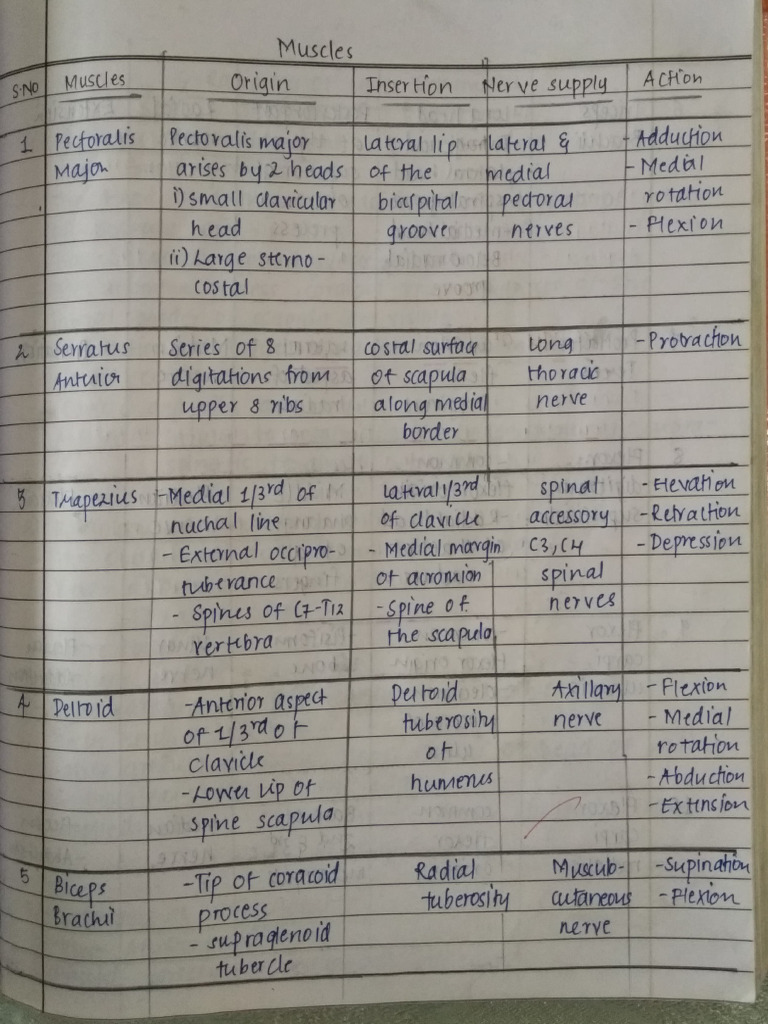 Muscles
S.NO Muscles Origin Insertion Nerve supply Action
1 Pectoralis Pectoralis major lateral lip lateral & - Adduction
Major arises by 2 heads of the medial - Medial
i) small clavicular bicipital pectoral rotation
head groove nerves - Flexion
ii) Large sterno-
costal
2 Serratus Series of 8 costal surface Long - Protraction
Anterior digitations from of scapula thoracic
upper 8 ribs along medial nerve
border
3 Trapezius - Medial 1/3rd of Lateral 1/3rd spinal - Elevation
nuchal line of clavicle accessory - Retraction
- External occipro- - Medial margin C3, C4 - Depression
tuberance of acromion spinal
- Spines of C7-T12 - Spine of nerves
vertebra the scapula
4 Deltoid - Anterior aspect Deltoid Axillary - Flexion
of 1/3rd of tuberosity nerve - Medial
clavicle of rotation
- Lower lip of humerus - Abduction
spine scapula - Extension
5 Biceps - Tip of coracoid Radial Musculo- - Supination
Brachii process tuberosity cutaneous - Flexion
- supraglenoid nerve
tubercle